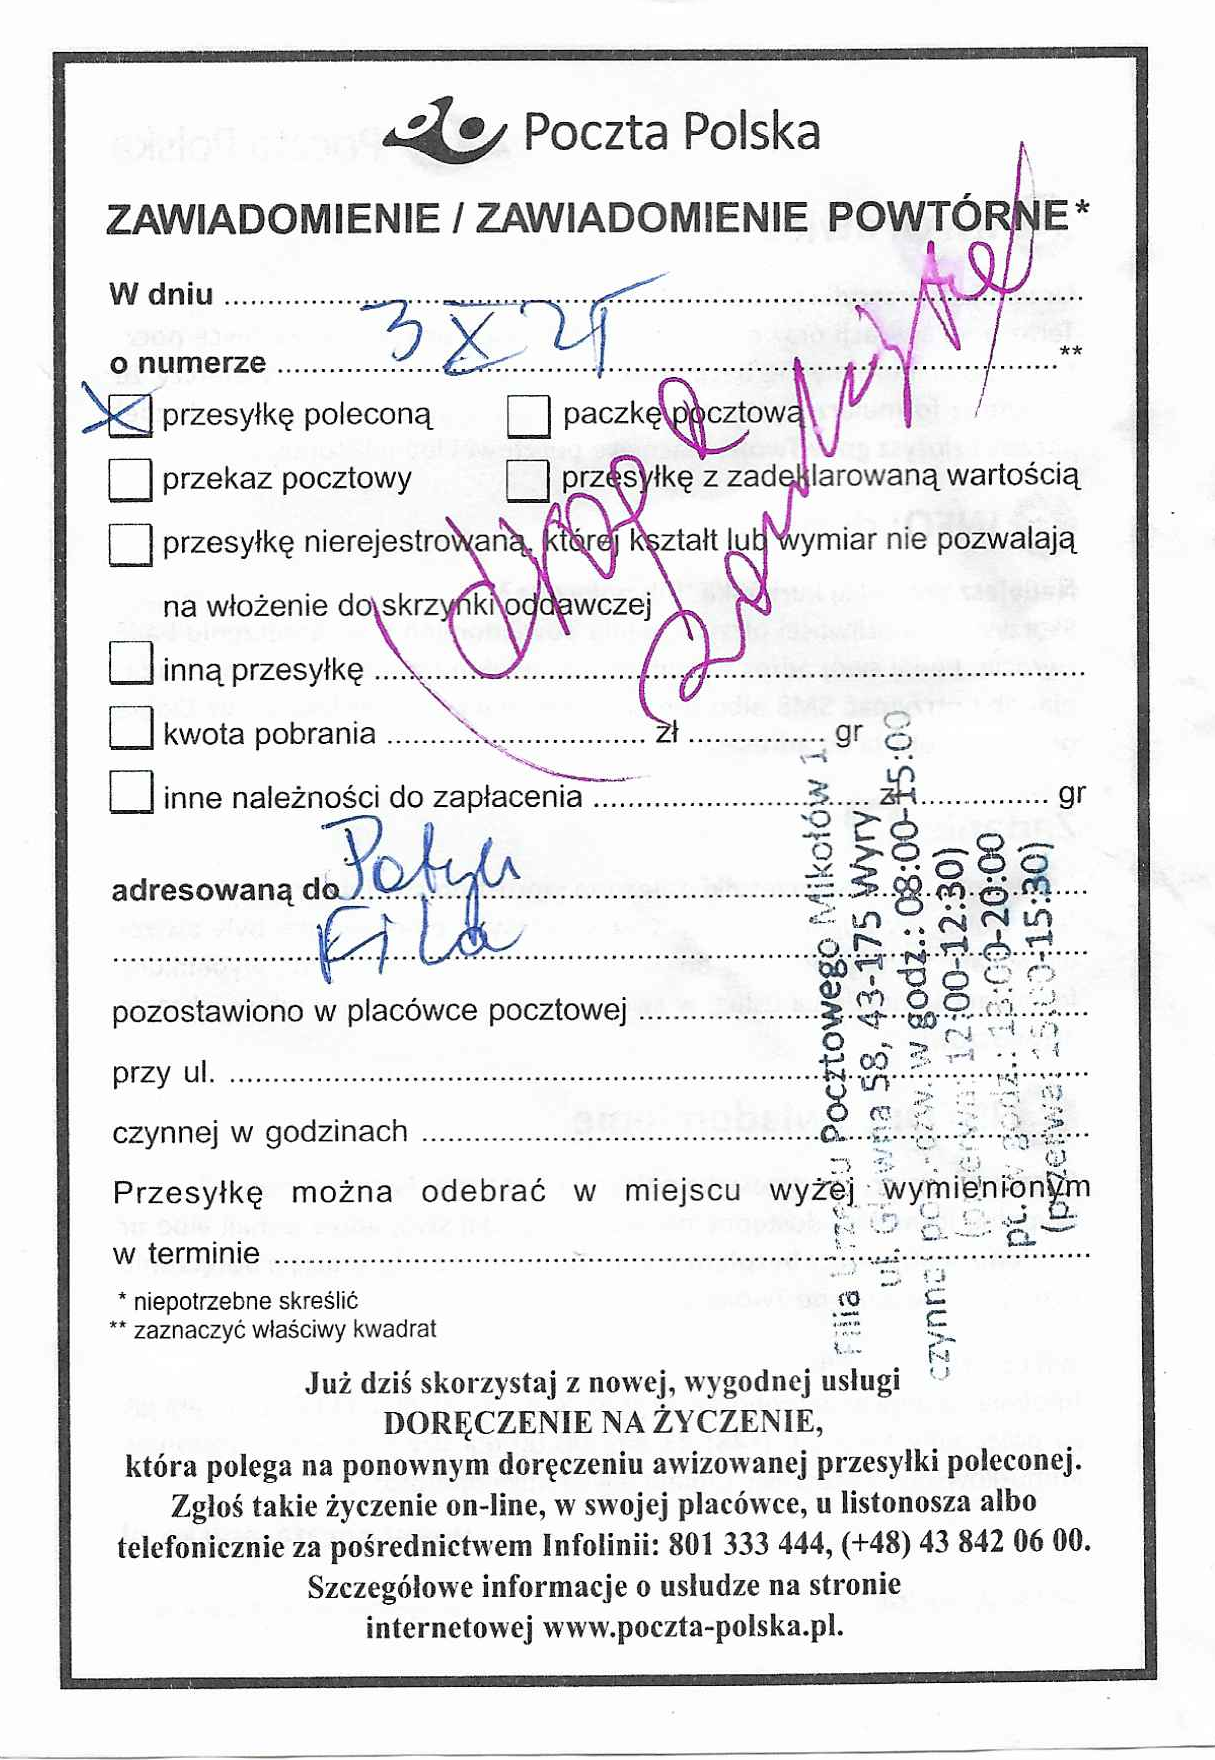 Poczta Polska
ZAWIADOMIENIE / ZAWIADOMIENIE POWTÓRNE*
W dniu
3 X 25
o numerze **
przesyłkę poleconą
paczkę pocztową
przekaz pocztowy
przesyłkę z zadeklarowaną wartością
przesyłkę nierejestrowaną, której kształt lub wymiar nie pozwalają
na włożenie do skrzynki oddawczej
inną przesyłkę
kwota pobrania zł gr
inne należności do zapłacenia zł gr
adresowaną do
Fila
pozostawiono w placówce pocztowej
przy ul.
czynnej w godzinach
Przesyłkę można odebrać w miejscu wyżej wymienionym
w terminie
* niepotrzebne skreślić
** zaznaczyć właściwy kwadrat
Filia Urzędu Pocztowego Mikołów 1
ul. Główna 58, 43-175 Wyry
czynna: pon.-czw. w godz.: 08:00-15:00
(przerwa: 12:00-12:30)
pt. w godz.: 13:00-20:00
(przerwa: 15:00-15:30)
Już dziś skorzystaj z nowej, wygodnej usługi
DORĘCZENIE NA ŻYCZENIE,
która polega na ponownym doręczeniu awizowanej przesyłki poleconej.
Zgłoś takie życzenie on-line, w swojej placówce, u listonosza albo
telefonicznie za pośrednictwem Infolinii: 801 333 444, (+48) 43 842 06 00.
Szczegółowe informacje o usłudze na stronie
internetowej www.poczta-polska.pl.